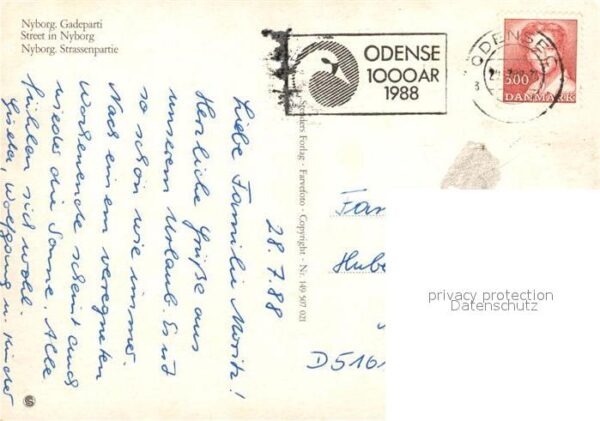 Nyborg. Gadeparti
Street in Nyborg
Nyborg. Strassenpartie
ODENSE
1000 ÅR
1988
ODENSE
3.00
DANMARK
28.7.88
Liebe Familie Moritz!
Herzliche Grüße aus
unserem Urlaub. Es ist
so schön wie immer.
Nach einem verregneten
Wochenende scheint auch
wieder die Sonne. Alle
fühlen sich wohl.
Gisela, Wolfgang u. Kinder
Stenders Forlag · Farvefoto · Copyright · Nr. 149 507 021
Fam
Hube
D 516
privacy protection
Datenschutz